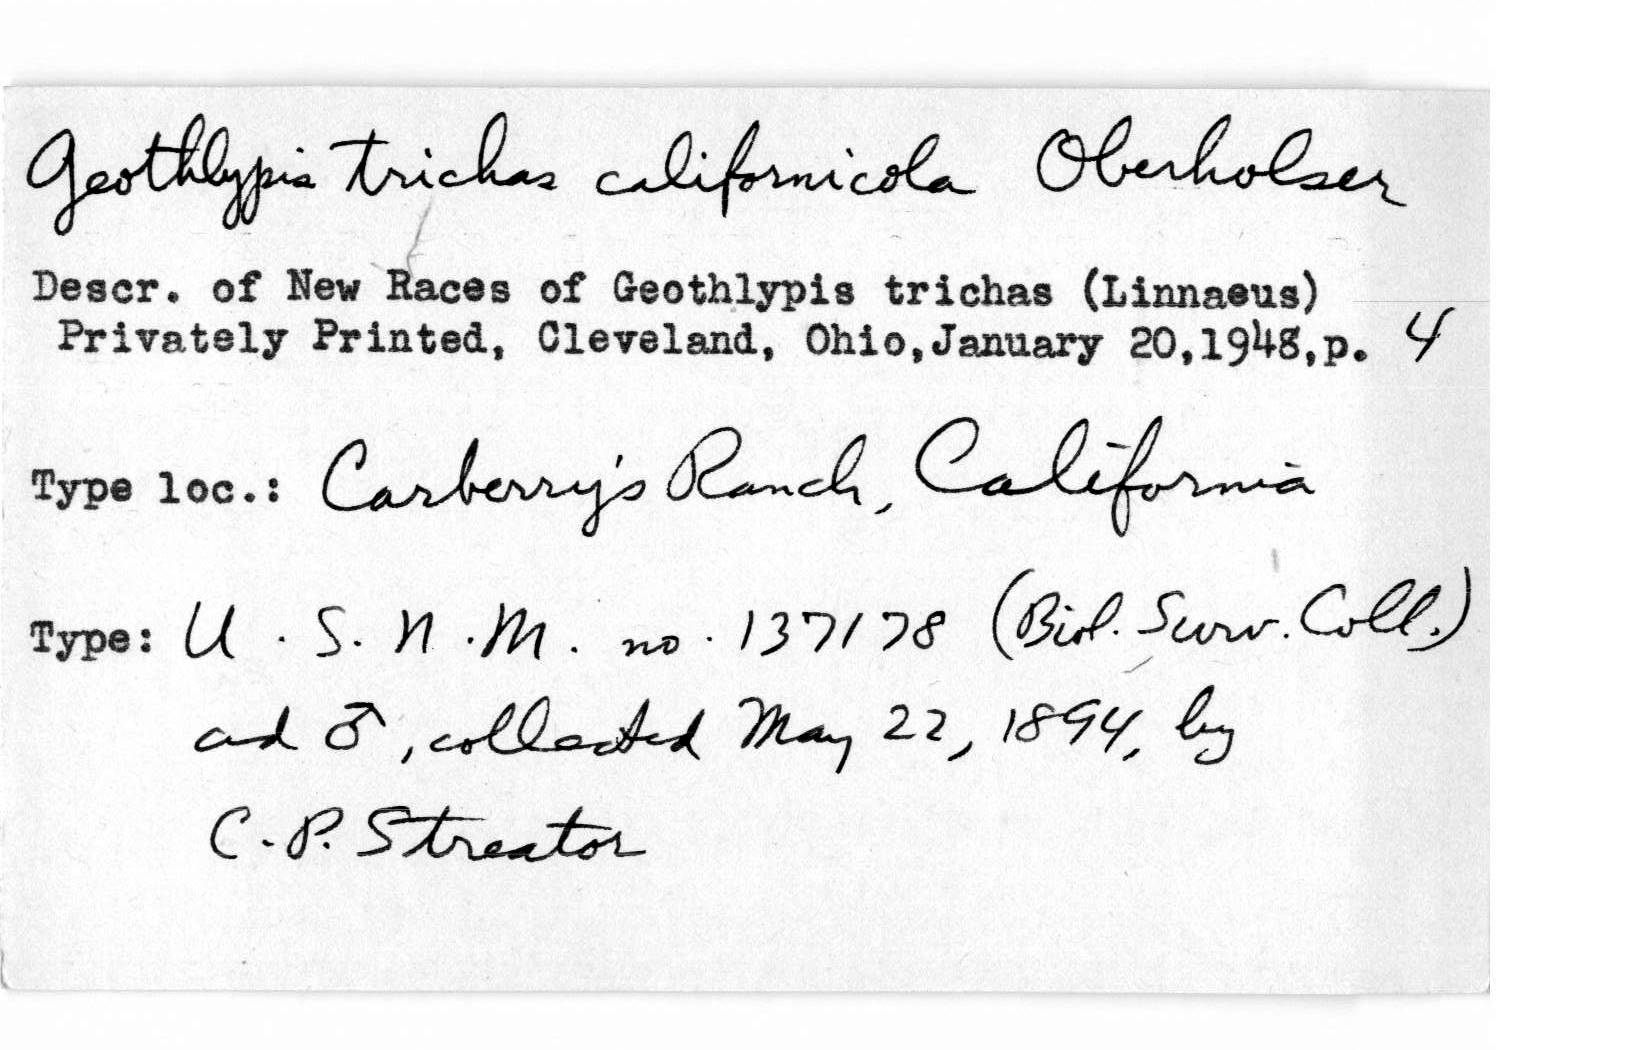 Geothlypis trichas californicola Oberholser
Descr. of New Races of Geothlypis trichas (Linnaeus)
Privately Printed, Cleveland, Ohio,January 20,1948,p. 4
Type loc.: Carberry's Ranch, California
Type: U.S.N.M. no. 137178 (Biol. Surv. Coll.)
ad ♂, collected May 22, 1894, by
C.P. Streator